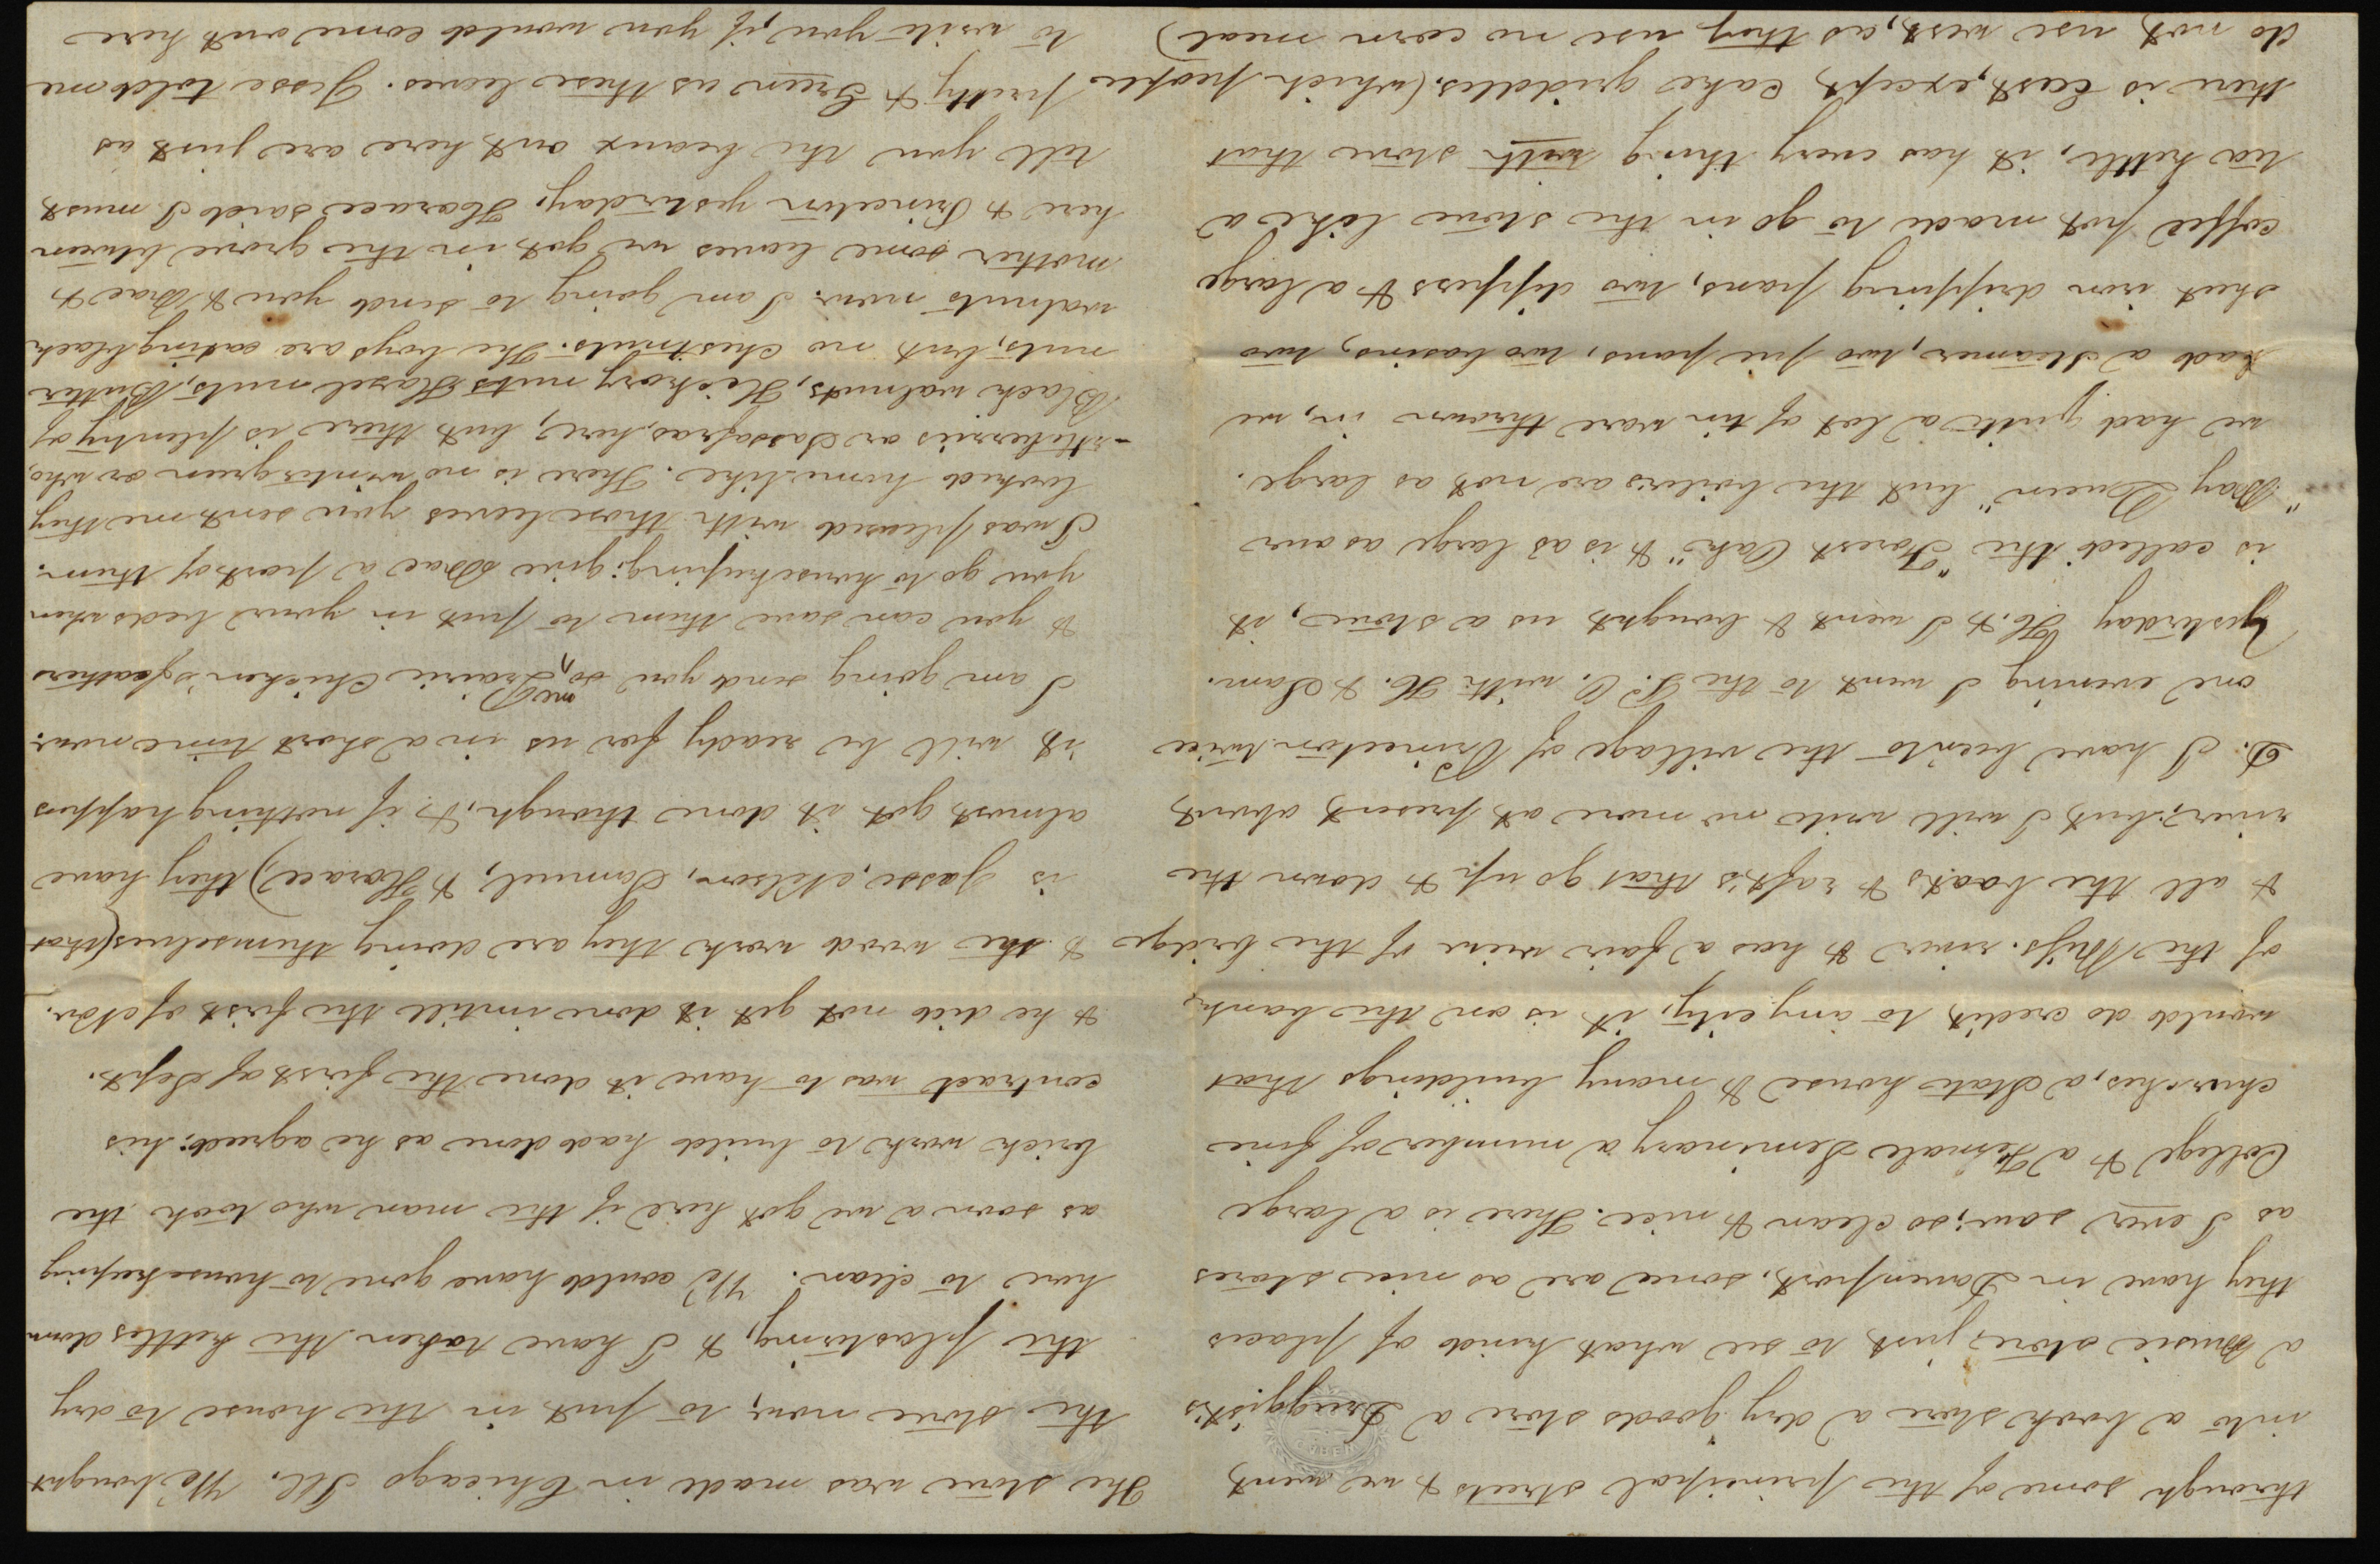 through some of the principal streets & we went
into a book store a dry goods store a Druggist's
a Music store, just to see what kind of places
they have in Davenport. some are as nice stores
as I ever saw; so clean & nice. There is a large
College & a Female Seminary a number of fine
churches, a State house & many buildings that
would do credit to any city, it is on the banks
of the Miss. river & has a fair view of the bridge
& all the boats & raft's that go up & down the
river; but I will write no more at present about
D. I have been to the village of Princeton twice
one evening I went to the P. O. with H. & Sam.
Yesterday H. & I went & bought us a stove, it
is called the "Forest Oak" & is as large as our
"Bay Queen" but the boilers are not as large.
we had quite a lot of tin ware thrown in, we
had a steamer, two pie pans, two basins, two
sheet iron dripping pans, two dippers & a large
coffee pot made to go in the stove like a
tea kettle, it has every thing with stove that
there is East, except cake griddles. (which people
do not use west, as they use no corn meal)
The stove was made in Chicago Ill. We bought
the stove now, to put in the house to dry
the plastering, & I have taken the kettles down
here to clean. We could have gone to housekeeping
as soon a we got here if the man who took the
brick work to build had done as he agreed; his
contract was to have it done the first of Sept.
& he did not get it done untill the first of Nov.
& the wood work they are doing themselves (that
is Jasse, Nelson, Samuel, & Horace) they have
almost got it done though, & if nothing happens
it will be ready for us in a short time now.
I am going send you some Prairie Chicken's feathers
& you can save them to put in your beds when
you go to housekeeping; give Brae a part of them.
I was pleased with those leaves you sent me they
looked home like. There is no wintergreen or who,
-rtleberries or Sassafras, here, but there is plenty of
Black walnuts, Hickory nuts Hazel nuts, Butter
nuts, but no chestnuts. The boys are eating black
walnuts now. I am going to send you & Brae &
mother some leaves we got in the grove between
here & Princeton yesterday; Horace said I must
tell you the beaux out here are just as
pretty & Green as these leaves. Jesse told me
to write you, if you would come out here